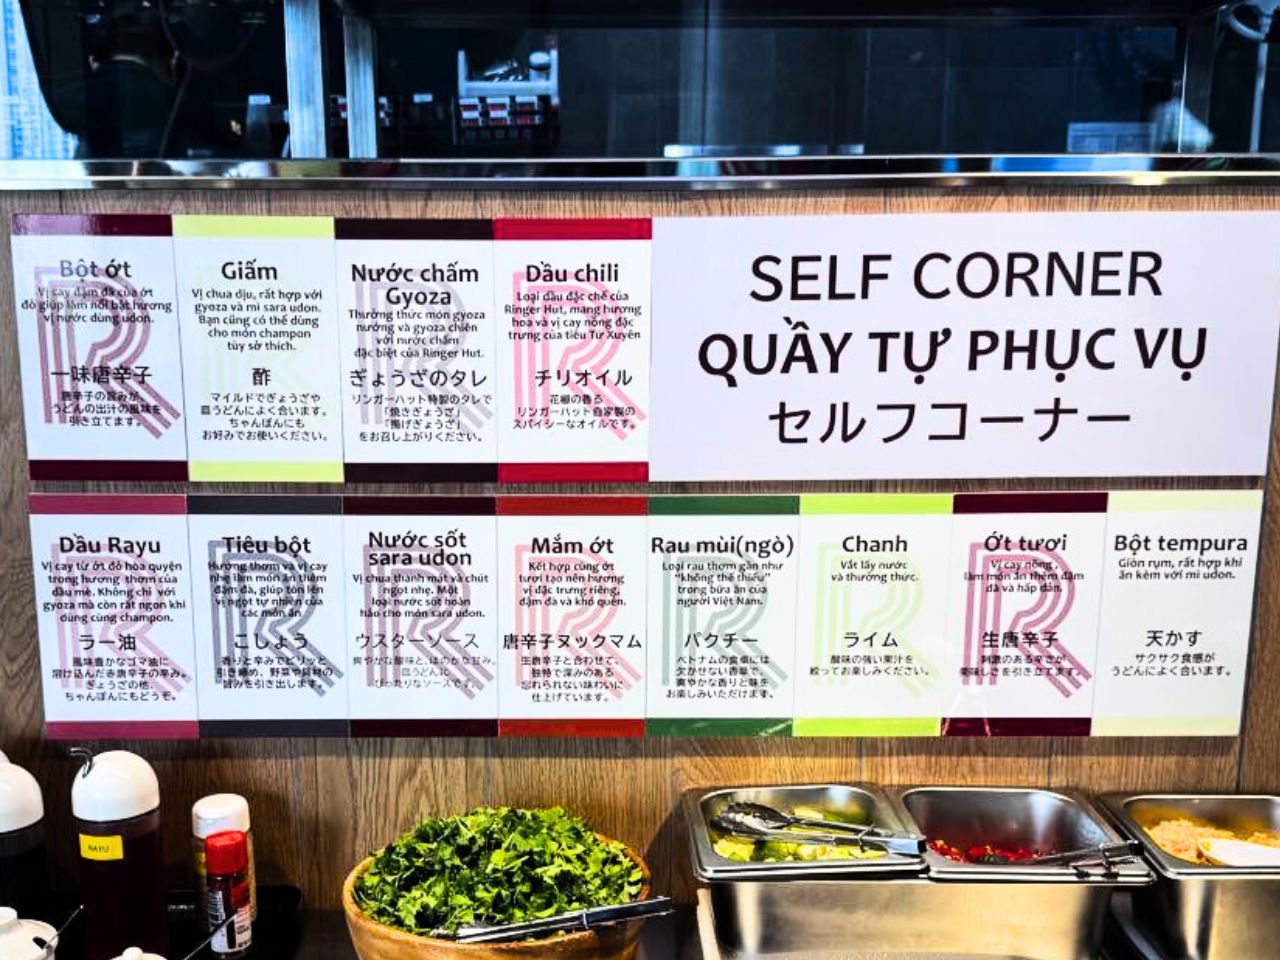 Bột ớt
Vị cay đậm đà của ớt
đỏ giúp làm nổi bật hương
vị nước dùng udon.
一味唐辛子
唐辛子の旨みが、
うどんの出汁の風味を
引き立てます。
Giấm
Vị chua dịu, rất hợp với
gyoza và mì sara udon.
Bạn cũng có thể dùng
cho món champon
tùy sở thích.
酢
マイルドでぎょうざや
皿うどんによく合います。
ちゃんぽんにも
お好みでお使いください。
Nước chấm
Gyoza
Thưởng thức món gyoza
nướng và gyoza chiên
với nước chấm
đặc biệt của Ringer Hut.
ぎょうざのタレ
リンガーハット特製のタレで
「焼きぎょうざ」
「揚げぎょうざ」
をお召し上がりください。
Dầu chili
Loại dầu đặc chế của
Ringer Hut, mang hương
hoa và vị cay nồng đặc
trưng của tiêu Tứ Xuyên
チリオイル
花椒の香る
リンガーハット自家製の
スパイシーなオイルです。
SELF CORNER
QUẦY TỰ PHỤC VỤ
セルフコーナー
Dầu Rayu
Vị cay từ ớt đỏ hòa quyện
trong hương thơm của
dầu mè. Không chỉ với
gyoza mà còn rất ngon khi
dùng cùng champon.
ラー油
風味豊かなゴマ油に
溶け込んだ赤唐辛子の辛み。
ぎょうざの他、
ちゃんぽんにもどうぞ。
Tiêu bột
Hương thơm và vị cay
nhẹ làm món ăn thêm
đậm đà, giúp tôn lên
vị ngọt tự nhiên của
các món ăn.
こしょう
香りと辛みでピリッと
引き締め、野菜や具材の
旨みを引き出します。
Nước sốt
sara udon
Vị chua thanh mát và chút
ngọt nhẹ. Một
loại nước sốt hoàn
hảo cho món sara udon.
ウスターソース
爽やかな酸味と、ほのかな甘み。
皿うどんに
ぴったりなソースです。
Mắm ớt
Kết hợp cùng ớt
tươi tạo nên hương
vị đặc trưng riêng,
đậm đà và khó quên.
唐辛子ヌックマム
生唐辛子と合わせて、
独特で深みのある
忘れられない味わいに
仕上げています。
Rau mùi(ngò)
Loại rau thơm gần như
“không thể thiếu”
trong bữa ăn của
người Việt Nam.
パクチー
ベトナムの食卓には
欠かせない香草で、
爽やかな香りと味を
お楽しみいただけます。
Chanh
Vắt lấy nước
và thưởng thức.
ライム
酸味の強い果汁を
絞ってお楽しみください。
Ớt tươi
Vị cay nồng,
làm món ăn thêm đậm
đà và hấp dẫn.
生唐辛子
刺激のある辛さが
美味しさを引き立てます。
Bột tempura
Giòn rụm, rất hợp khi
ăn kèm với mì udon.
天かす
サクサク食感が
うどんによく合います。
RAYU